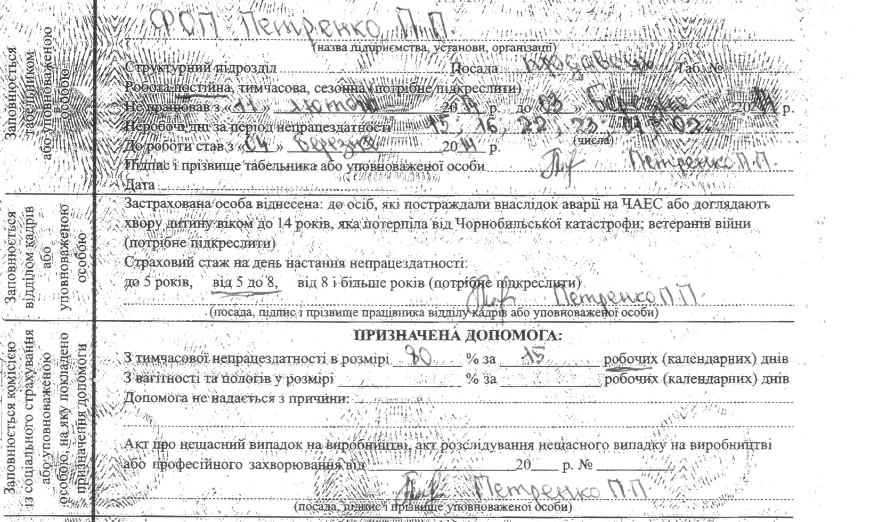 ФОП Петренко П.П.
(назва підприємства, установи, організації)
Структурний підрозділ Посада продавець Таб. №
Робота постійна, тимчасова, сезонна (потрібне підкреслити)
Не працював з «11» лютого 2014 р. до «03» березня 2014 р.
Неробочі дні за період непрацездатності 15, 16, 22, 23, 01, 02.
(числа)
До роботи став з «04» березня 2014 р.
Підпис і прізвище табельника або уповноваженої особи Петренко П.П.
Дата
Застрахована особа віднесена: до осіб, які постраждали внаслідок аварії на ЧАЕС або доглядають
хвору дитину віком до 14 років, яка потерпіла від Чорнобильської катастрофи; ветеранів війни
(потрібне підкреслити)
Страховий стаж на день настання непрацездатності:
до 5 років, від 5 до 8, від 8 і більше років (потрібне підкреслити)
Петренко П.П.
(посада, підпис і прізвище працівника відділу кадрів або уповноваженої особи)
ПРИЗНАЧЕНА ДОПОМОГА:
З тимчасової непрацездатності в розмірі 80 % за 15 робочих (календарних) днів
З вагітності та пологів у розмірі % за робочих (календарних) днів
Допомога не надається з причини:
Акт про нещасний випадок на виробництві, акт розслідування нещасного випадку на виробництві
або професійного захворювання від 20 р. №
Петренко П.П
(посада, підпис і прізвище уповноваженої особи)
Заповнюється
табельником
або уповноваженою
особою
Заповнюється
відділом кадрів
або
уповноваженою
особою
Заповнюється комісією
із соціального страхування
або уповноваженою
особою, на яку покладено
призначення допомоги